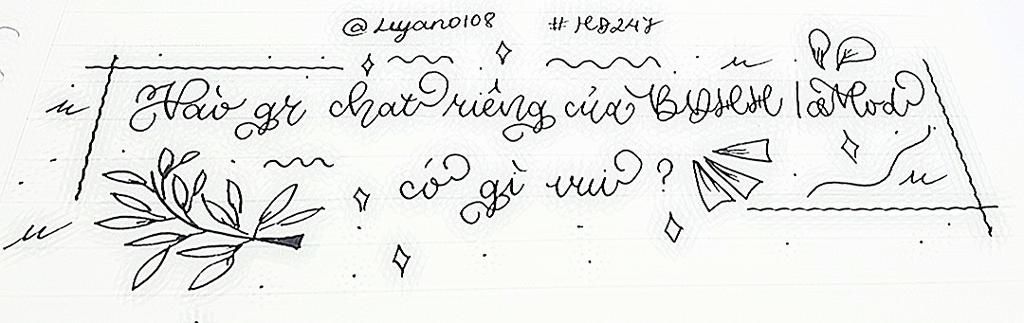 @Luyano108 #HD247
Vào gr chat riêng của BDHH | Mod
có gì vui ?